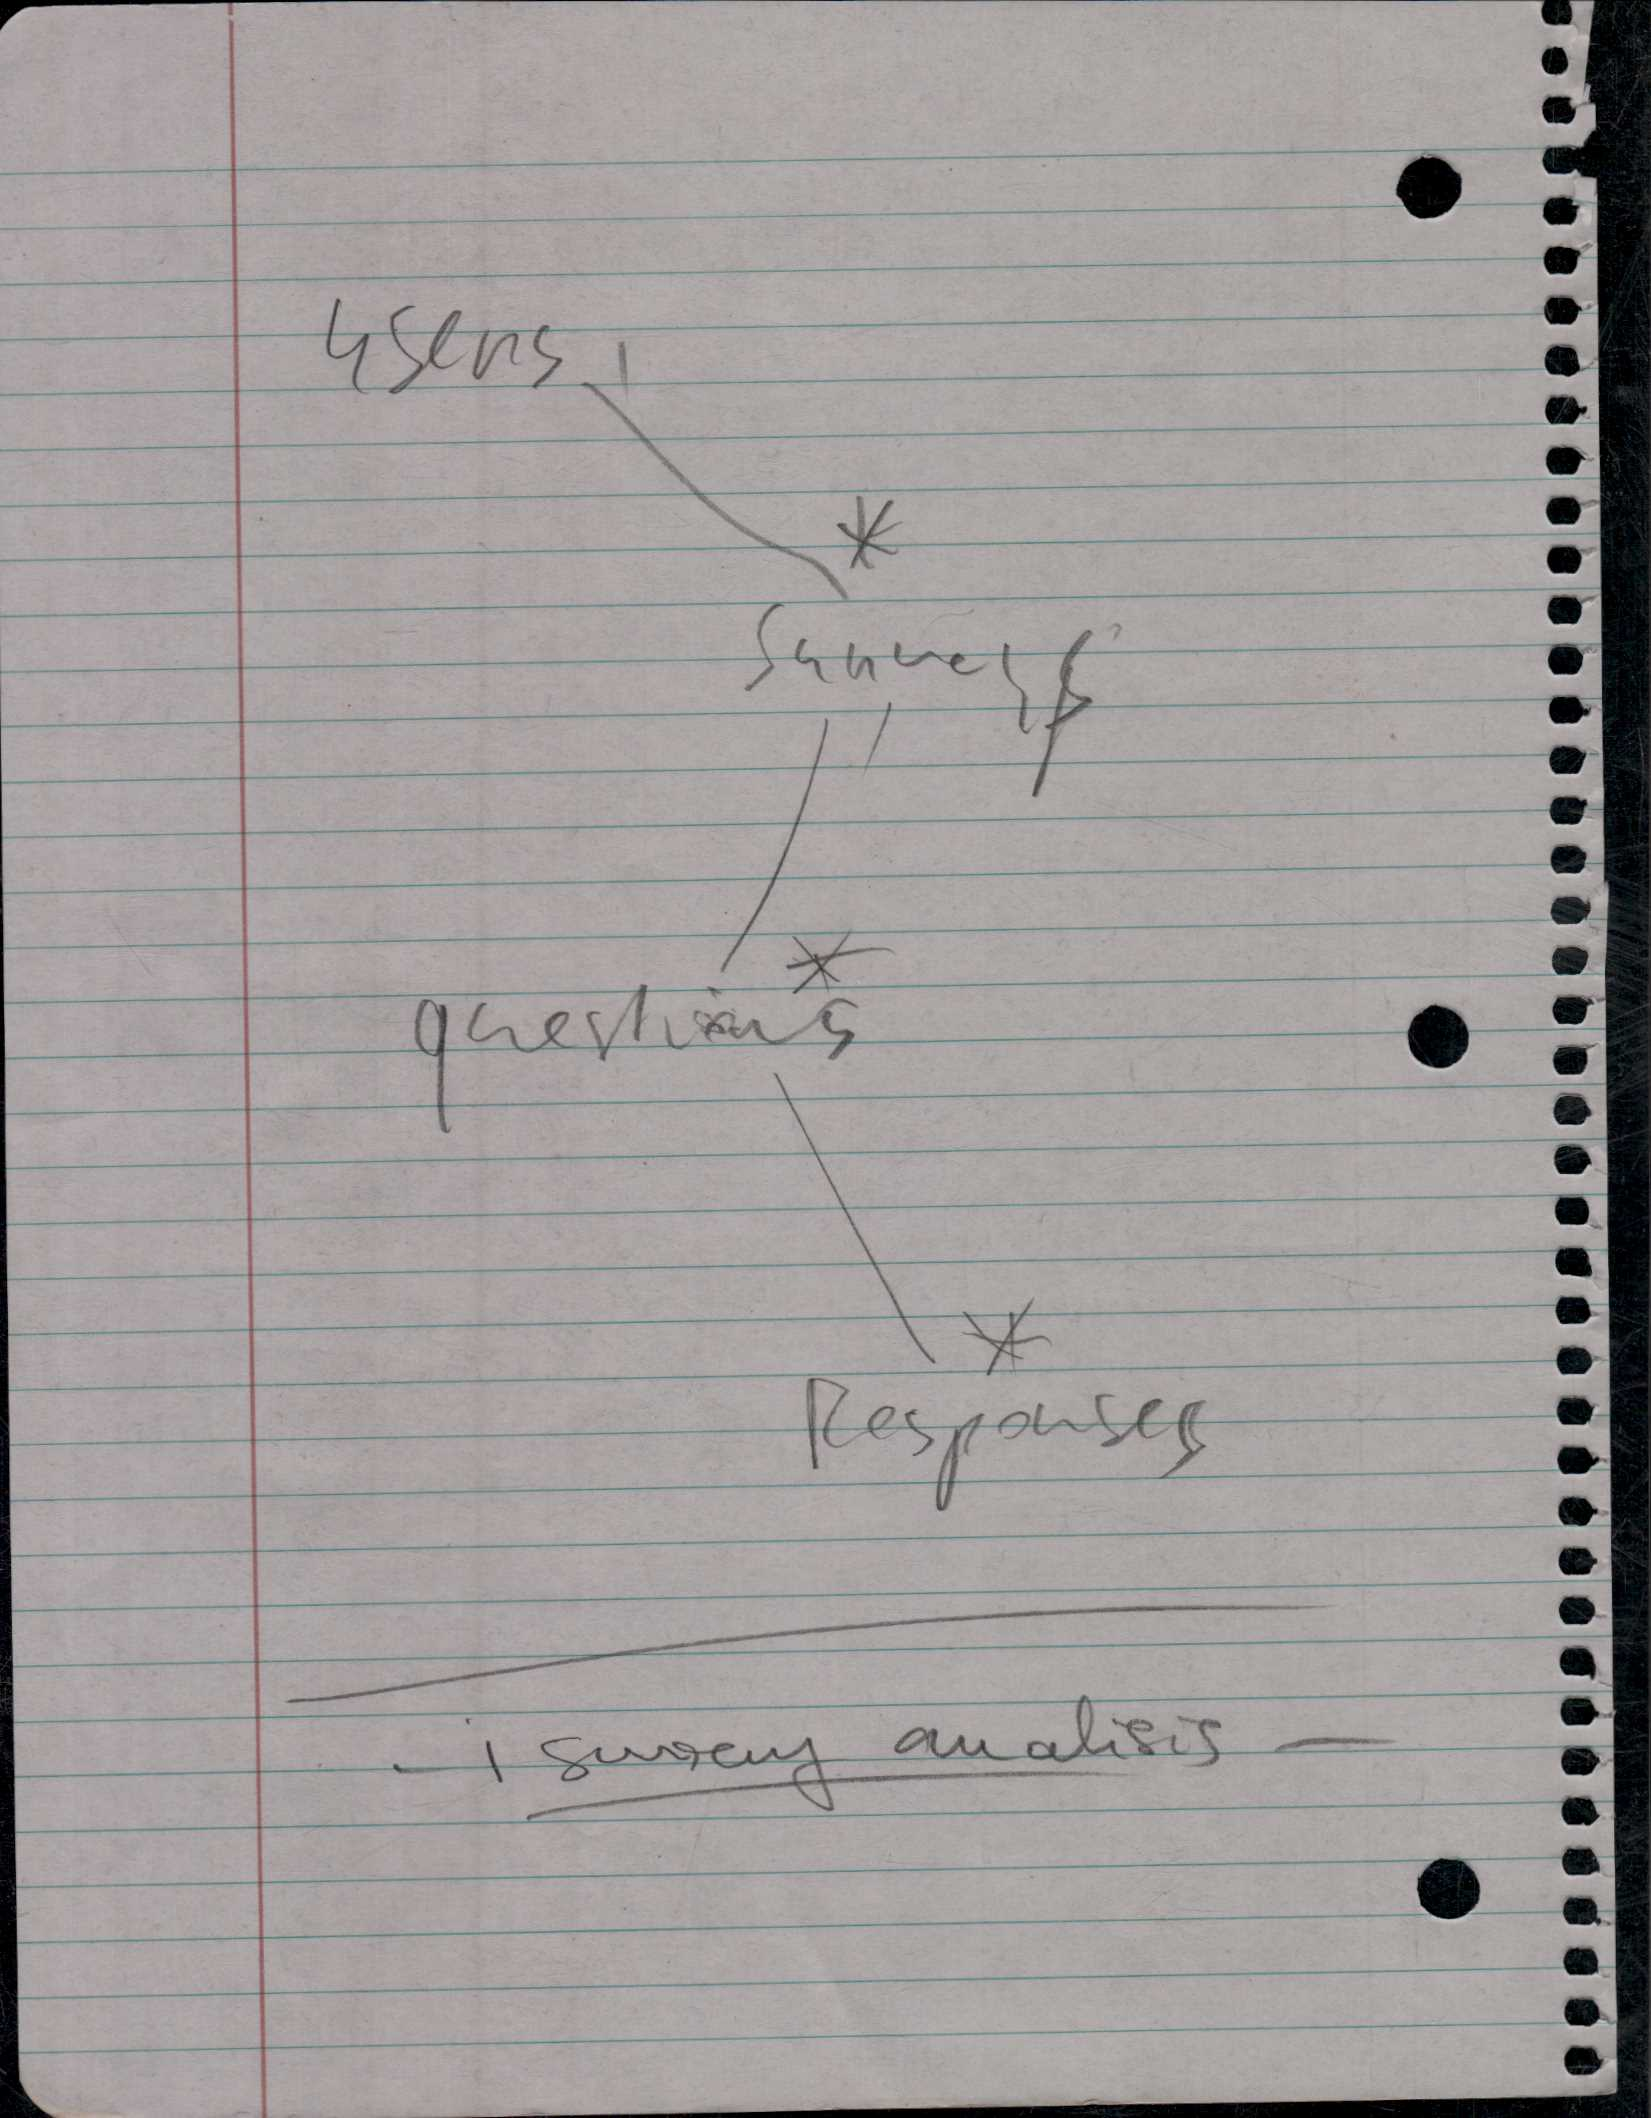 Users 1
*
Surveys
1
*
questions
*
Responses
- 1 survey analisis -